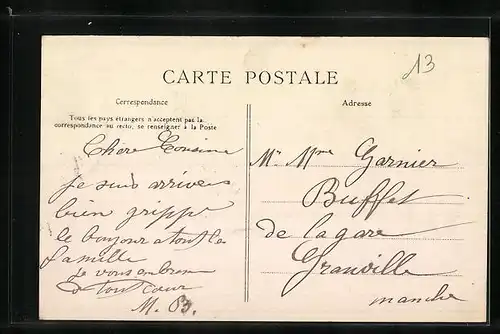 13
CARTE POSTALE
Correspondance
Tous les pays étrangers n'acceptent pas la
correspondance au recto, se renseigner à la Poste
Chere Cousine
je suis arrivers
bien grippe
le bonjour a tout la
famille
je vous embrem
d tout cœur
M. B.
Adresse
Mr Mme Garnier
Buffet
de la gare
Granville
manche